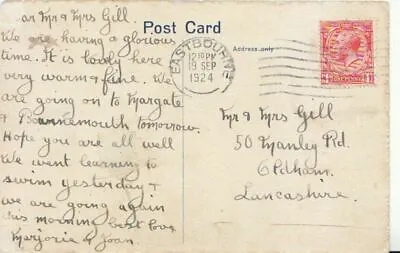 ar Mr & Mrs Gill.
We are having a glorious
time. It is lovely here
very warm & fine. We
are going on to Margate
& Bournemouth tomorrow.
Hope you are all well
We went learning to
swim yesterday &
we are going again
this morning best love
Marjorie & Joan.
Post Card
Address only
EASTBOURNE
12 PM
19 SEP
1924
Mr & Mrs Gill
50 Manley Rd.
Oldham.
Lancashire.